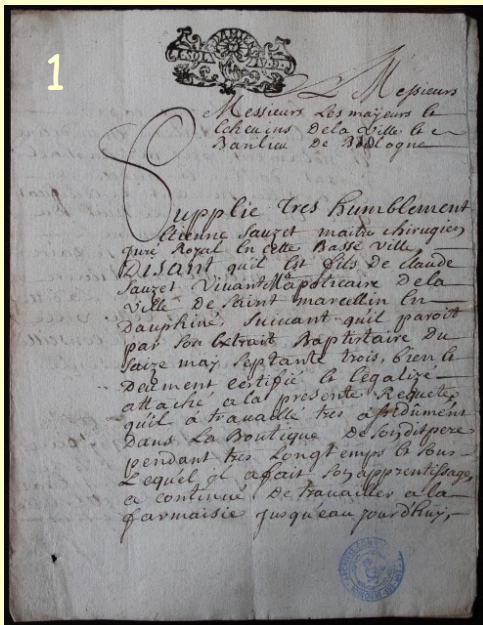 1
AMIENS
A Messieurs
Messieurs Les mayeurs et
Echeuins Dela Ville et
Banlieu De Bologne
Supplie tres humblement
Etienne Sauzet maitre chirugien
juré Royal En cette Basse Ville,
DISant quil Est fils De claude
Sauzet Viuant Mᵉ apoticaire Dela
Ville De Saint marcellin En
Dauphiné, Suiuant quil paroit
par Son Extrait Baptistaire Du
Saize may, Septante trois, bien et
Deument certifié et Légalizé
attaché a la presente Requete,
quil à trauaillé tres assidument
Dans La Boutique De Sondit pere
pendant tres Longtemps et Sous
Lequel il a fait Son apprentissage,
a continué De trauailler a la
farmaisie jusqueau jourdhuy,